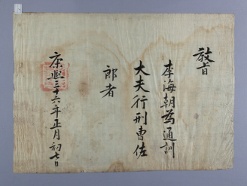 敎旨
李海朝爲通訓
大夫行刑曹佐
郞者
康熙三十六年正月初七日